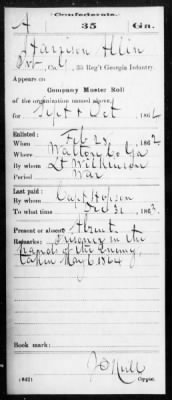 Confederate.
A 35 Ga.
Harrison Allin
Pvt, Co. G, 35 Reg't Georgia Infantry
Appears on
Company Muster Roll
of the organization named above,
for Sept & Oct, 1864
Enlisted:
When Feb 25, 1862
Where Walton Co Ga
By whom Lt Wilkinson
Period War
Last paid:
By whom Capt Hobson
To what time Dec 31, 1863
Present or absent Absent
Remarks: Prisoner in the
hands of the enemy,
taken May 6 1864
Book mark:
(642)
Copyist.